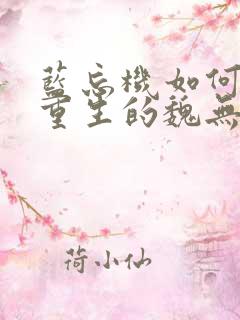 藍忘機如何
重生的魏無
荷小仙